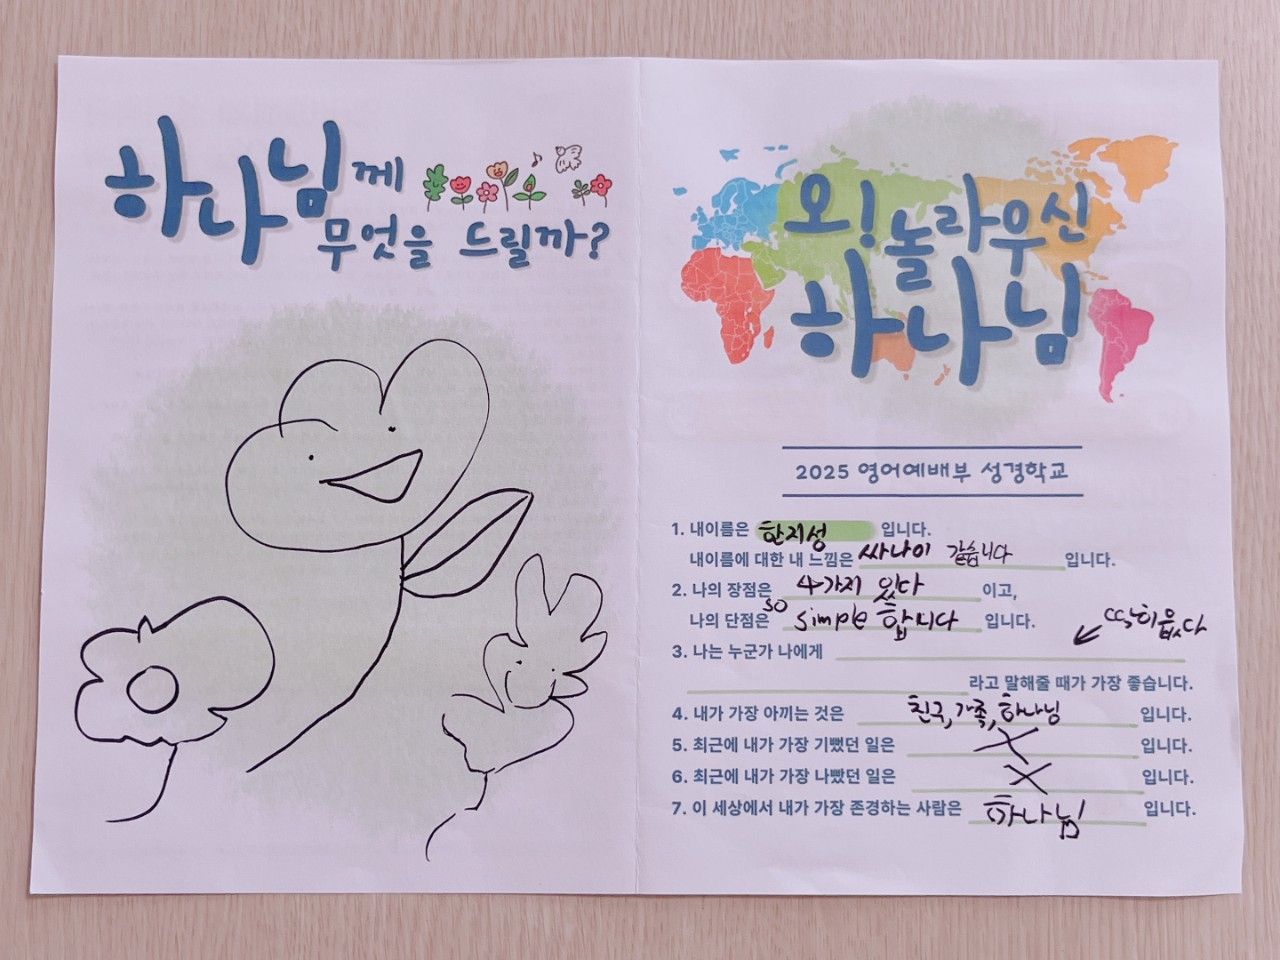 하나님께
무엇을 드릴까?
오! 놀라우신
하나님
2025 영어예배부 성경학교
1. 내이름은 한지성 입니다.
내이름에 대한 내 느낌은 싸나이 같습니다 입니다.
2. 나의 장점은 4가지 있다 이고,
나의 단점은 so simple 합니다 입니다.
3. 나는 누군가 나에게 ↙ 딱히 없다
라고 말해줄 때가 가장 좋습니다.
4. 내가 가장 아끼는 것은 친구, 가족, 하나님 입니다.
5. 최근에 내가 가장 기뻤던 일은 X 입니다.
6. 최근에 내가 가장 나빴던 일은 X 입니다.
7. 이 세상에서 내가 가장 존경하는 사람은 하나님 입니다.